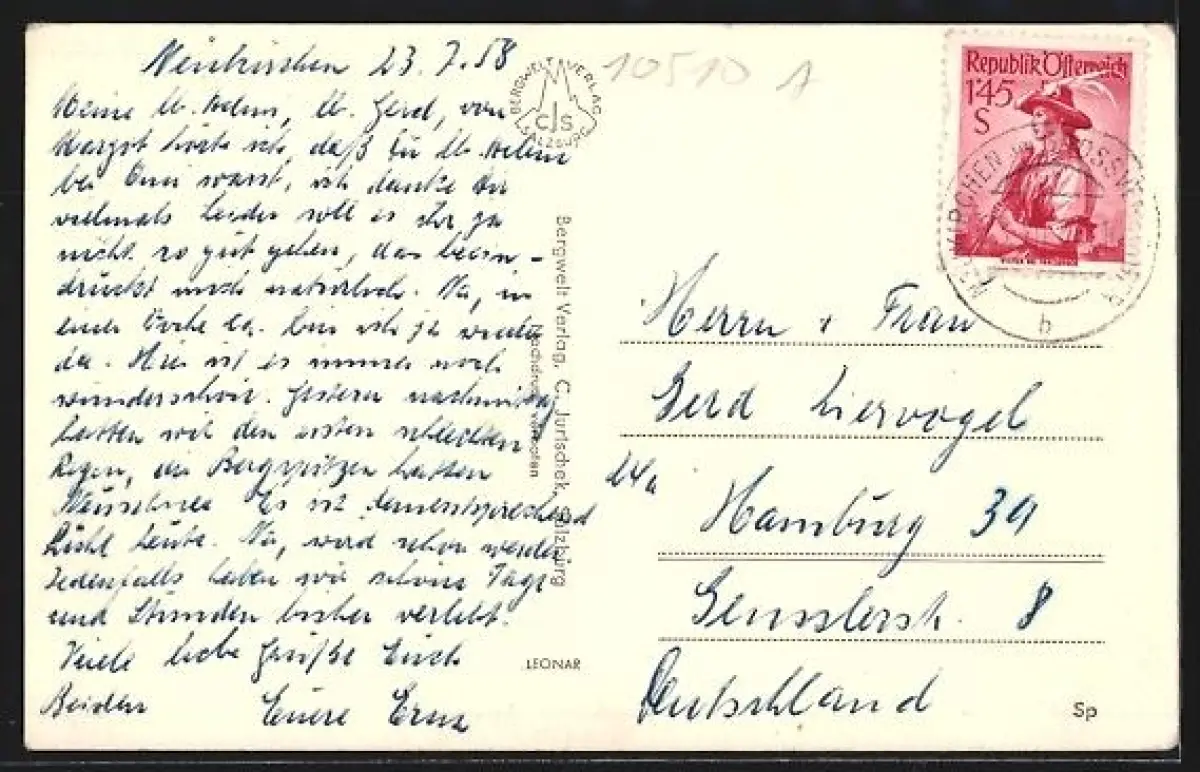 Neukirchen 23.7.58
Meine lb. Helen, lb. Gerd, von
Margot hörte ich, daß Du lb. Helene
bei Omi warst, ich danke Dir
vielmals leider soll es ihr ja
nicht so gut gehen, das beein-
drückt mich natürlich. Na, in
einer Woche ca. bin ich ja wieder
da. Hier ist es immer noch
wunderschön. Gestern nachmittag
hatten wir den ersten schlechten
Regen, die Bergspitzen hatten
Neuschnee. Es ist dementsprechend
kühl heute. Na, wird schon werden
Jedenfalls haben wir schöne Tage
und Stunden bisher verlebt.
Viele liebe Grüße Euch
Beiden Euere Erna
BERGWELT VERLAG
CJS
SALZBURG
10510 A
Bergwelt Verlag, C. Jurischek, Salzburg
Nachdruck verboten
LEONAR
Republik Österreich
1'45
S
NEUKIRCHEN am GROSSVENEDIGER
b
Herrn + Frau
Gerd Liervogel
24a Hamburg 39
Gensslerstr. 8
Deutschland
Sp